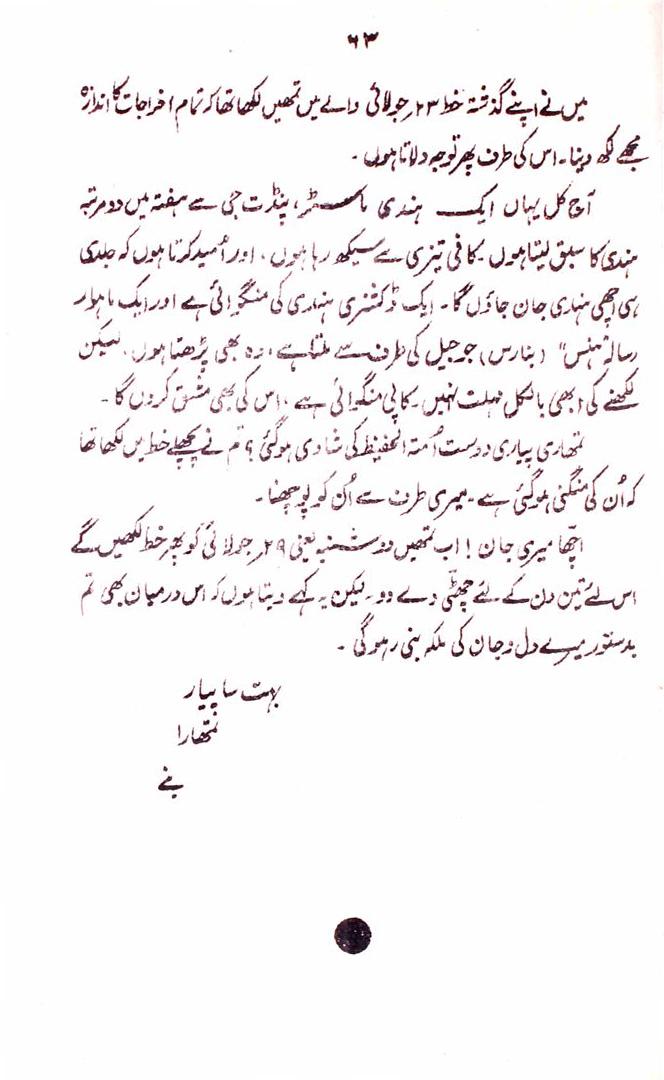 ۶۳
میں نے اپنے گذشتہ خط ۲۳؍جولائی والے میں تمھیں لکھا تھا کہ تمام اخراجات کا اندازہ
مجھے لکھ دینا۔ اس کی طرف پھر توجہ دلاتا ہوں۔
آج کل یہاں ایک ہندی ماسٹر، پنڈت جی سے ہفتہ میں دو مرتبہ
ہندی کا سبق لیتا ہوں۔ کافی تیزی سے سیکھ رہا ہوں، اور اُمید کرتا ہوں کہ جلدی
ہی اچھی ہندی جان جاؤں گا۔ ایک ڈکشنری ہندی کی منگوائی ہے اور ایک ماہوار
رسالہ "ہنس" (بنارس) جو جیل کی طرف سے ملتا ہے، وہ بھی پڑھتا ہوں، لیکن
لکھنے کی ابھی بالکل مہلت نہیں۔ کاپی منگوائی ہے، اس کی بھی مشق کروں گا۔
تمھاری پیاری دوست اُمتہ الحفیظ کی شادی ہوگئی؟ تم نے پچھلے خط میں لکھا تھا
کہ اُن کی منگنی ہوگئی ہے۔ میری طرف سے اُن کو پوچھنا۔
اچھا میری جان! اب تمھیں دوشنبہ یعنی ۲۹؍جولائی کو پھر خط لکھیں گے
اس لئے تین دن کے لئے چھٹی دے دو۔ لیکن یہ کہے دیتا ہوں کہ اس درمیان بھی تم
بدستور میرے دل و جان کی ملکہ بنی رہوگی۔
بہت سا پیار
تمھارا
بنے